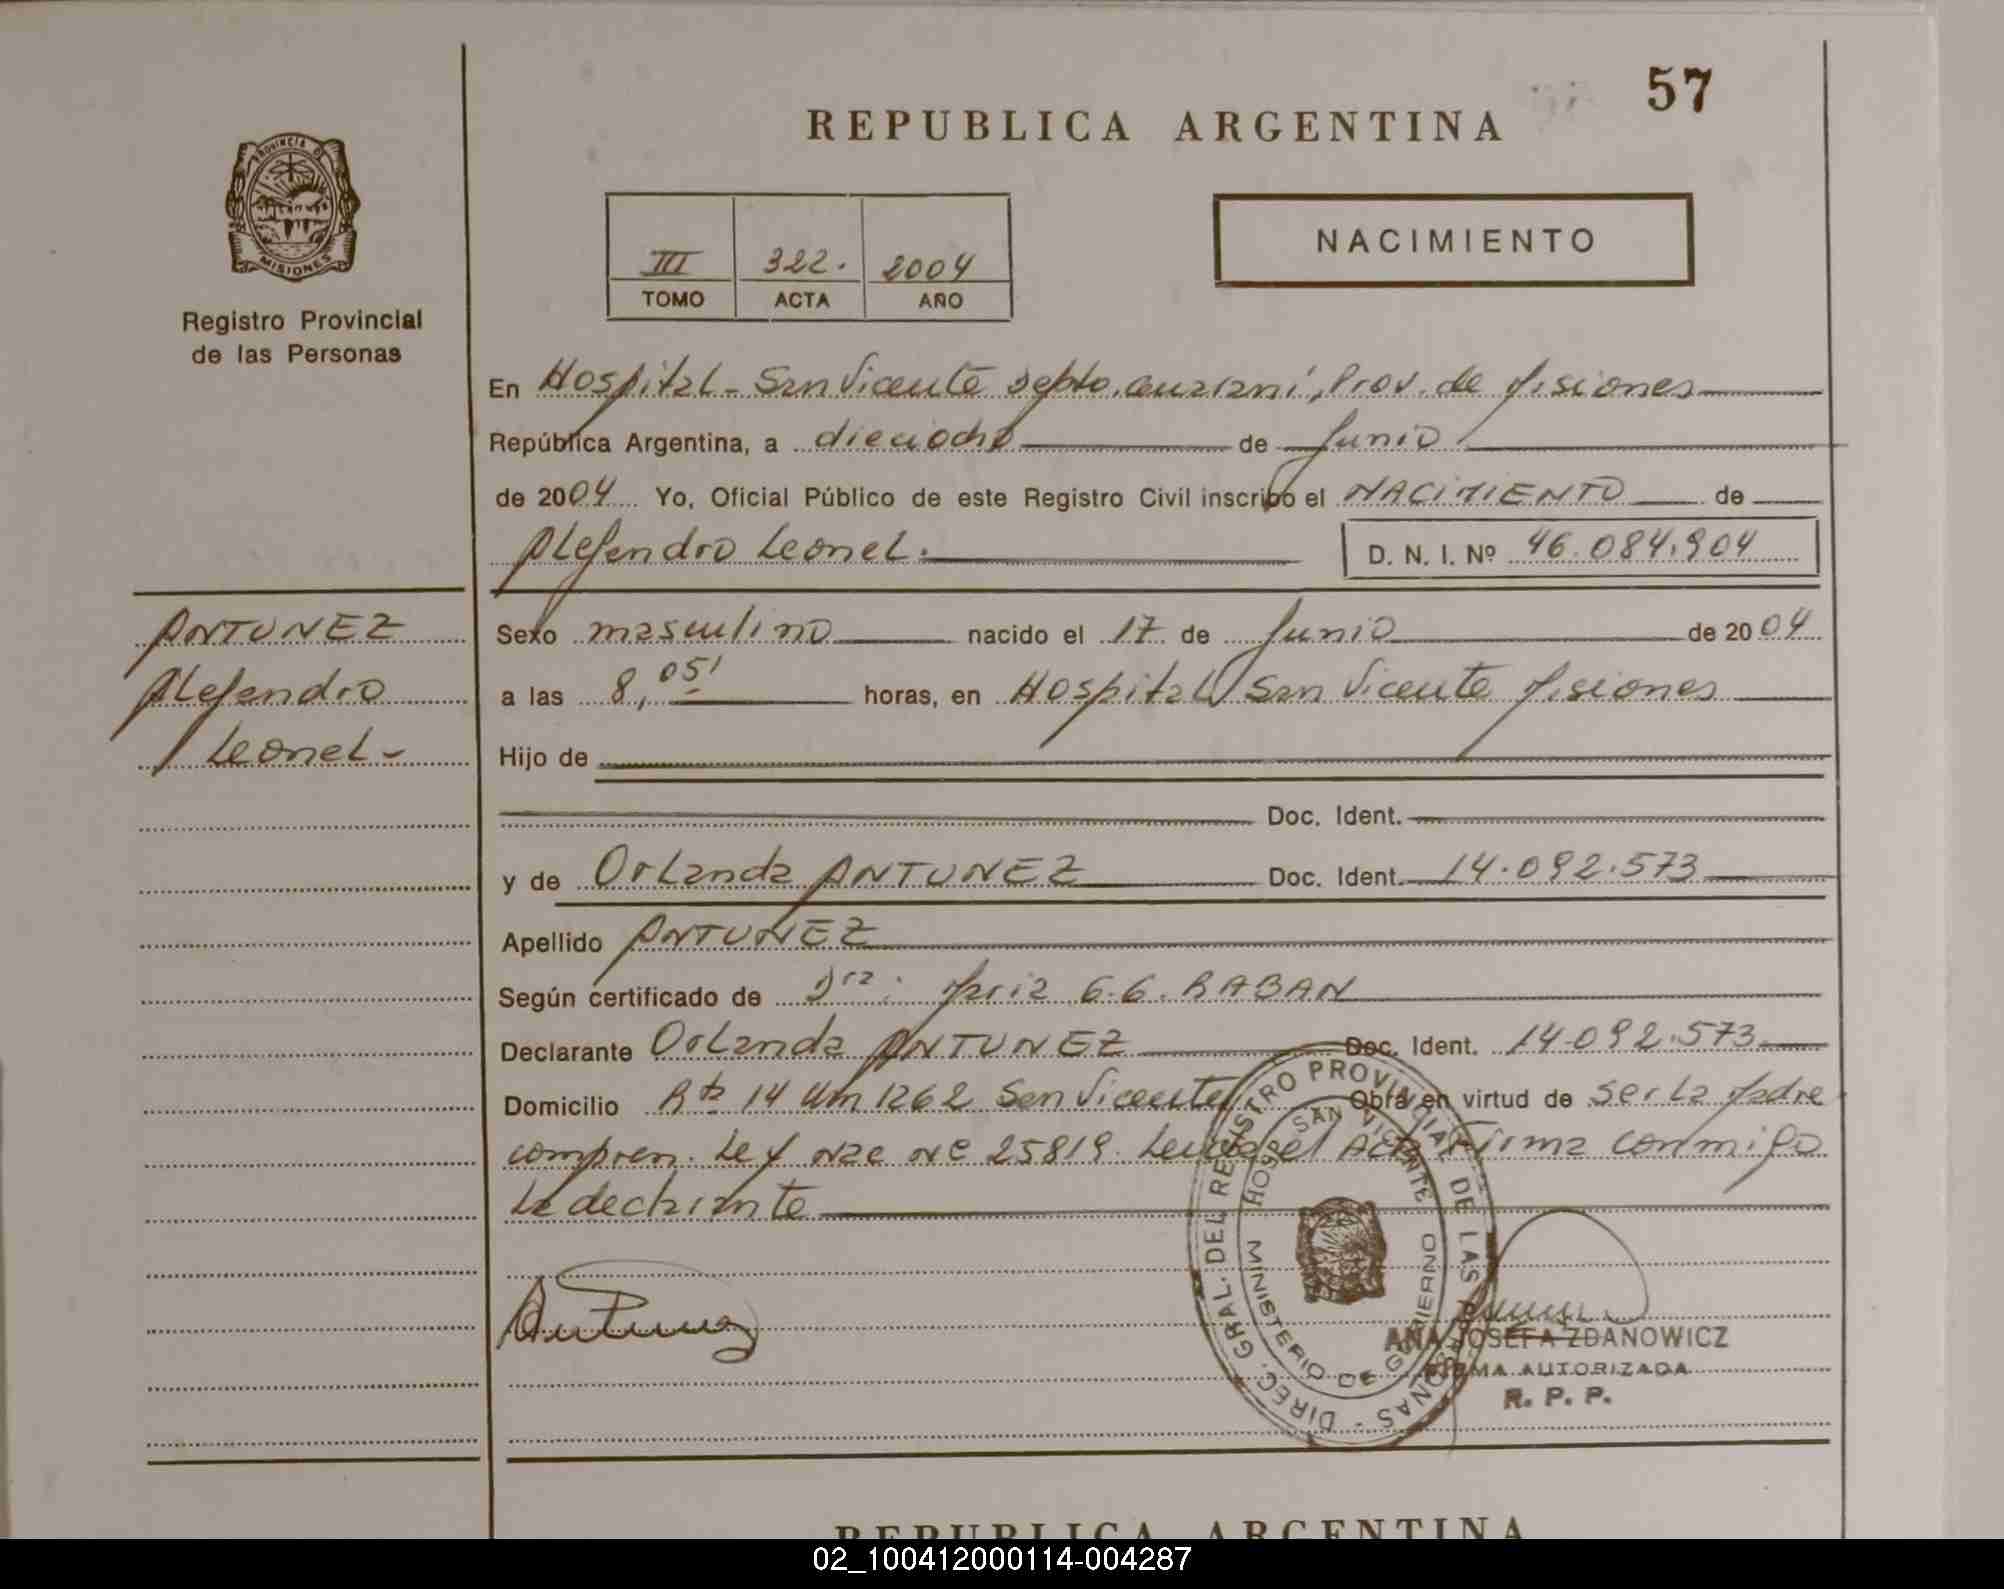 57
REPUBLICA ARGENTINA
PROVINCIA DE
MISIONES
Registro Provincial
de las Personas
III 322. 2004
TOMO ACTA AÑO
NACIMIENTO
En Hospital - San Vicente Depto. Guaraní, Prov. de Misiones
República Argentina, a dieciocho de Junio
de 2004 Yo, Oficial Público de este Registro Civil inscribo el NACIMIENTO de
Alejandro Leonel. D. N. I. Nº 46.084.904
ANTUNEZ
Alejandro
Leonel-
Sexo masculino nacido el 17 de Junio de 2004
a las 8,05' horas, en Hospital San Vicente Misiones
Hijo de
Doc. Ident.
y de Orlanda ANTUNEZ Doc. Ident. 14.092.573
Apellido ANTUNEZ
Según certificado de Dra: Maria G.G. RABAN
Declarante Orlanda ANTUNEZ Doc. Ident. 14.092.573
Domicilio Rta 14 Km 1262 San Vicente Obra en virtud de ser La Madre
compren. Ley Nac Nº 25819. Leida el Acta Firma conmigo
La declarante
Antunez
DIREC. GRAL. DEL REGISTRO PROVINCIAL DE LAS PERSONAS -
HOSP. SAN VICENTE
MINISTERIO DE GOBIERNO
ANA JOSEFA ZDANOWICZ
FIRMA AUTORIZADA
R. P. P.
REPUBLICA ARGENTINA
02_100412000114-004287